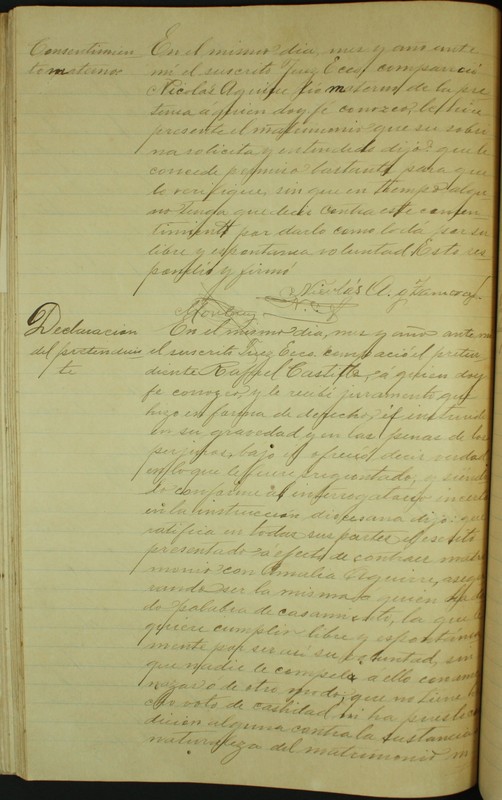 Consentimien
to materno
En el mismo dia, mes y año ante
mi el suscrito Juez Ecco. compareció
Nicolás Aguirre tio materno de la pre
tensa á quien doy fé conozco, le hice
presente el matrimonio que su sobri
na solicita y entendido dijo: que le
concede permiso bastante para que
lo verifique, sin que en tiempo algu
no tenga que decir contra este consen
timiento por darlo como lo dá por su
libre y espontanea voluntad. Esto res
pondió y firmó
Nicolás A.
Declaracion
del pretendien
te
En el mismo dia, mes y año ante mi
el suscrito Juez Ecco. compareció el preten
diente Rafael Castillo, á quien doy
fe conozco, y le recibí juramento que
hizo en forma de derecho, é instruido
en su gravedad y en las penas de los
perjuros, bajo el ofreció decir verdad
en lo que le fuere preguntado, y siendo
lo conforme al interrogatorio inserto
en la instruccion diocesana dijo: que
ratifica en todas sus partes el escrito
presentado á efecto de contraer matri
monio con Amalia Aguirre, asegu
rando ser la misma á quien ha da
do palabra de casamiento, la que le
quiere cumplir libre y espontanea
mente por ser asi su voluntad, sin
que nadie le compela á ello con ame
nazas ó de otro modo; que no tiene he
cho voto de castidad, ni ha puesto con
dicion alguna contra la sustancia ó
naturaleza del matrimonio